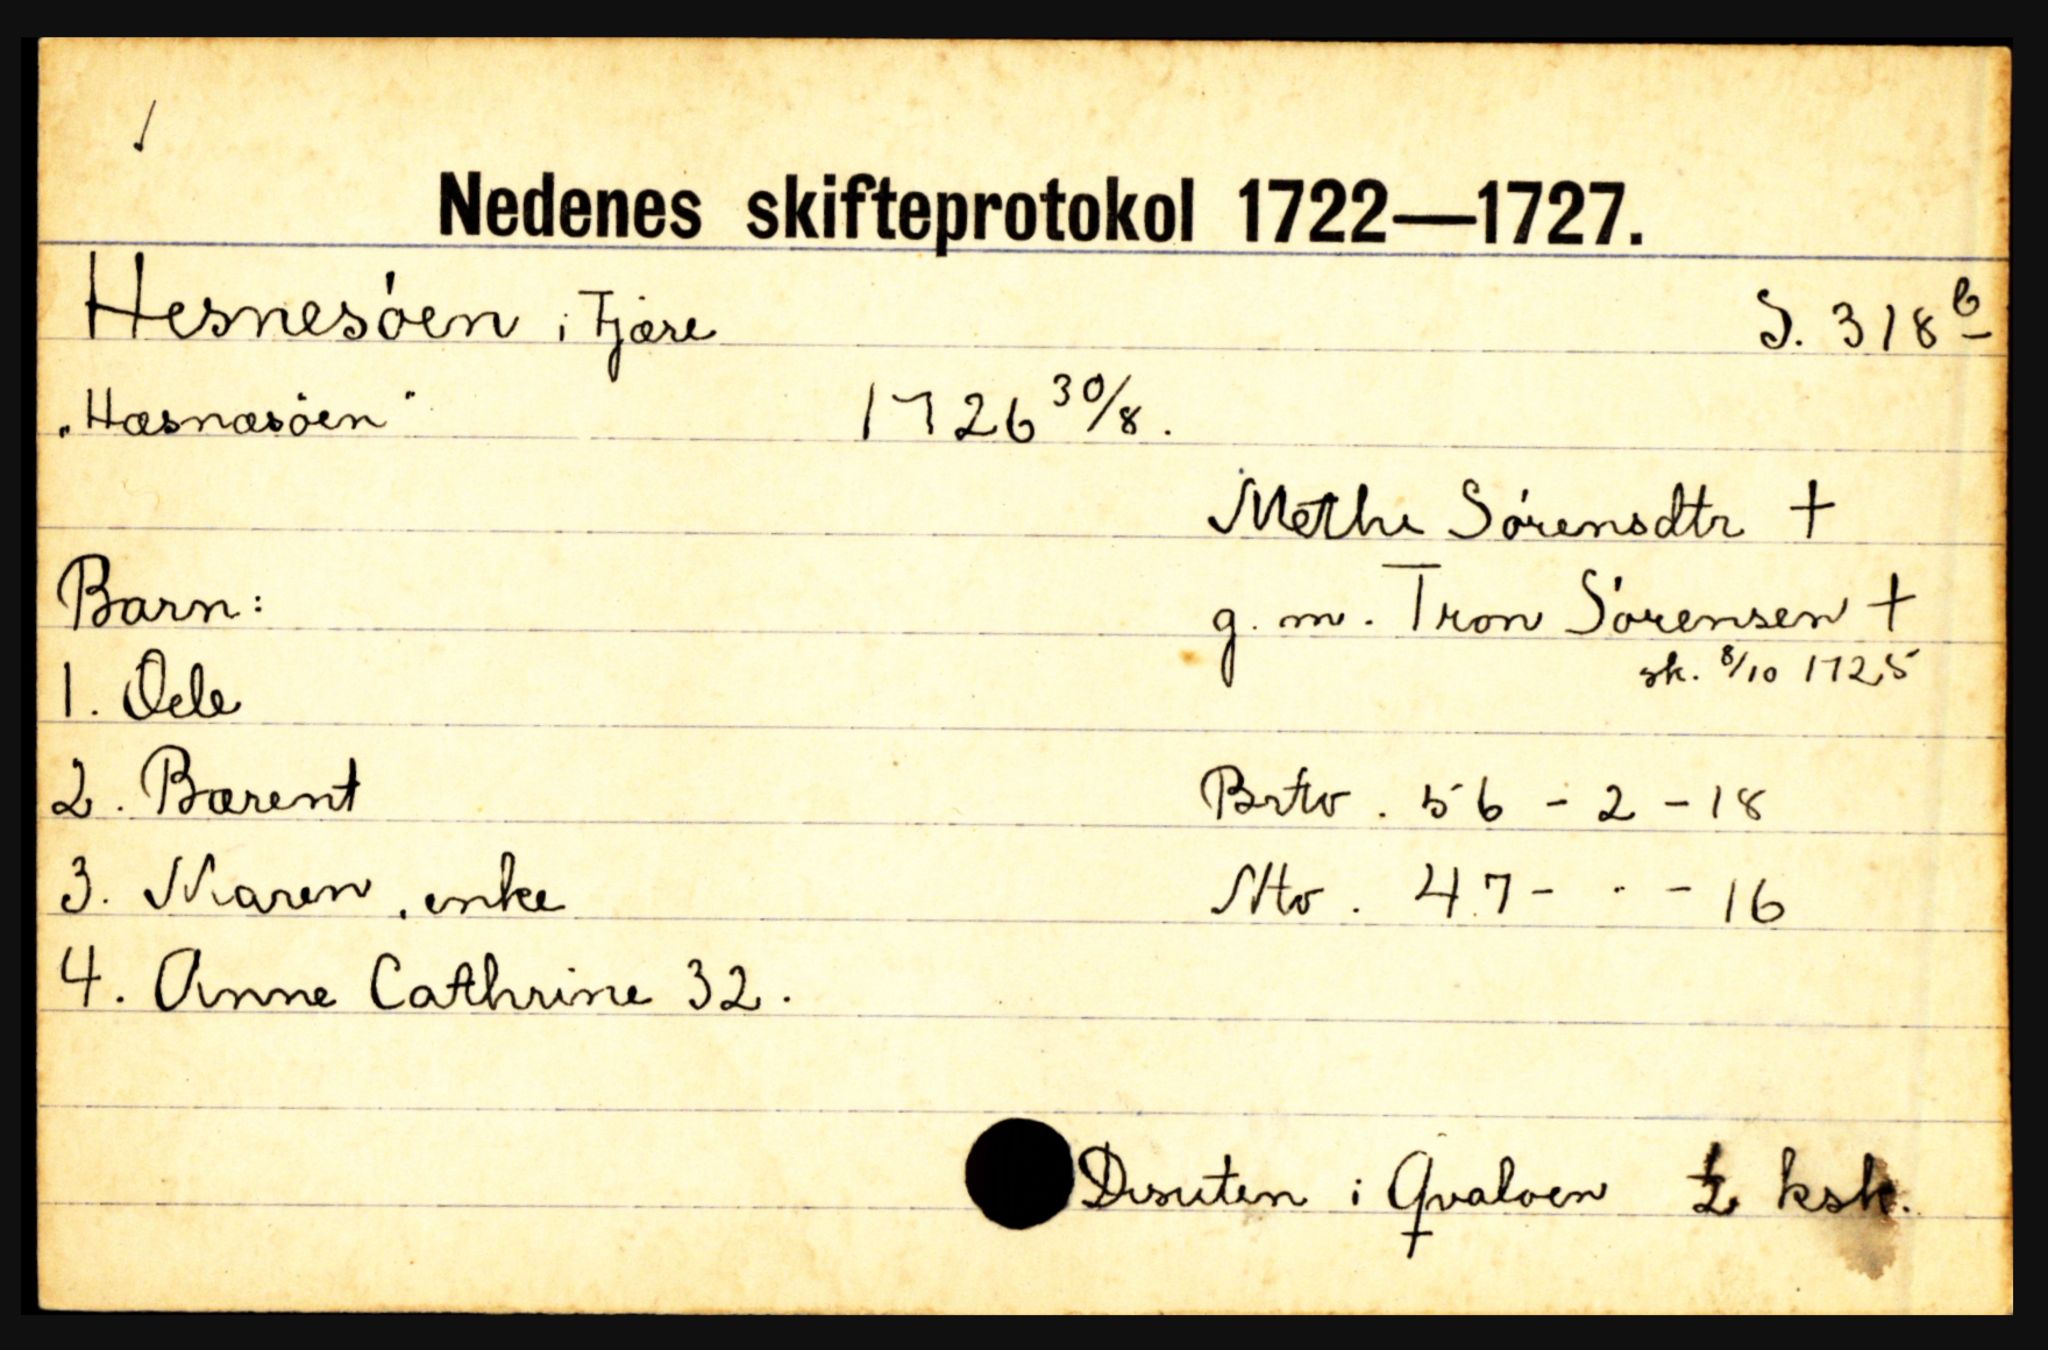 Nedenes skifteprotokol 1722—1727.
Hesnesöen i Fjære S. 318b
„Hæsnæsöen" 1726 30/8.
Methe Sörensdtr +
Barn: g. m. Tron Sörensen +
sk. 8/10 1725
1. Oele
2. Bærent Brtv. 56 - 2 - 18
3. Maren, enke Ntv. 47 - · - 16
4. Anne Cathrine 32.
Desuten i Qvaløen ½ ksk.